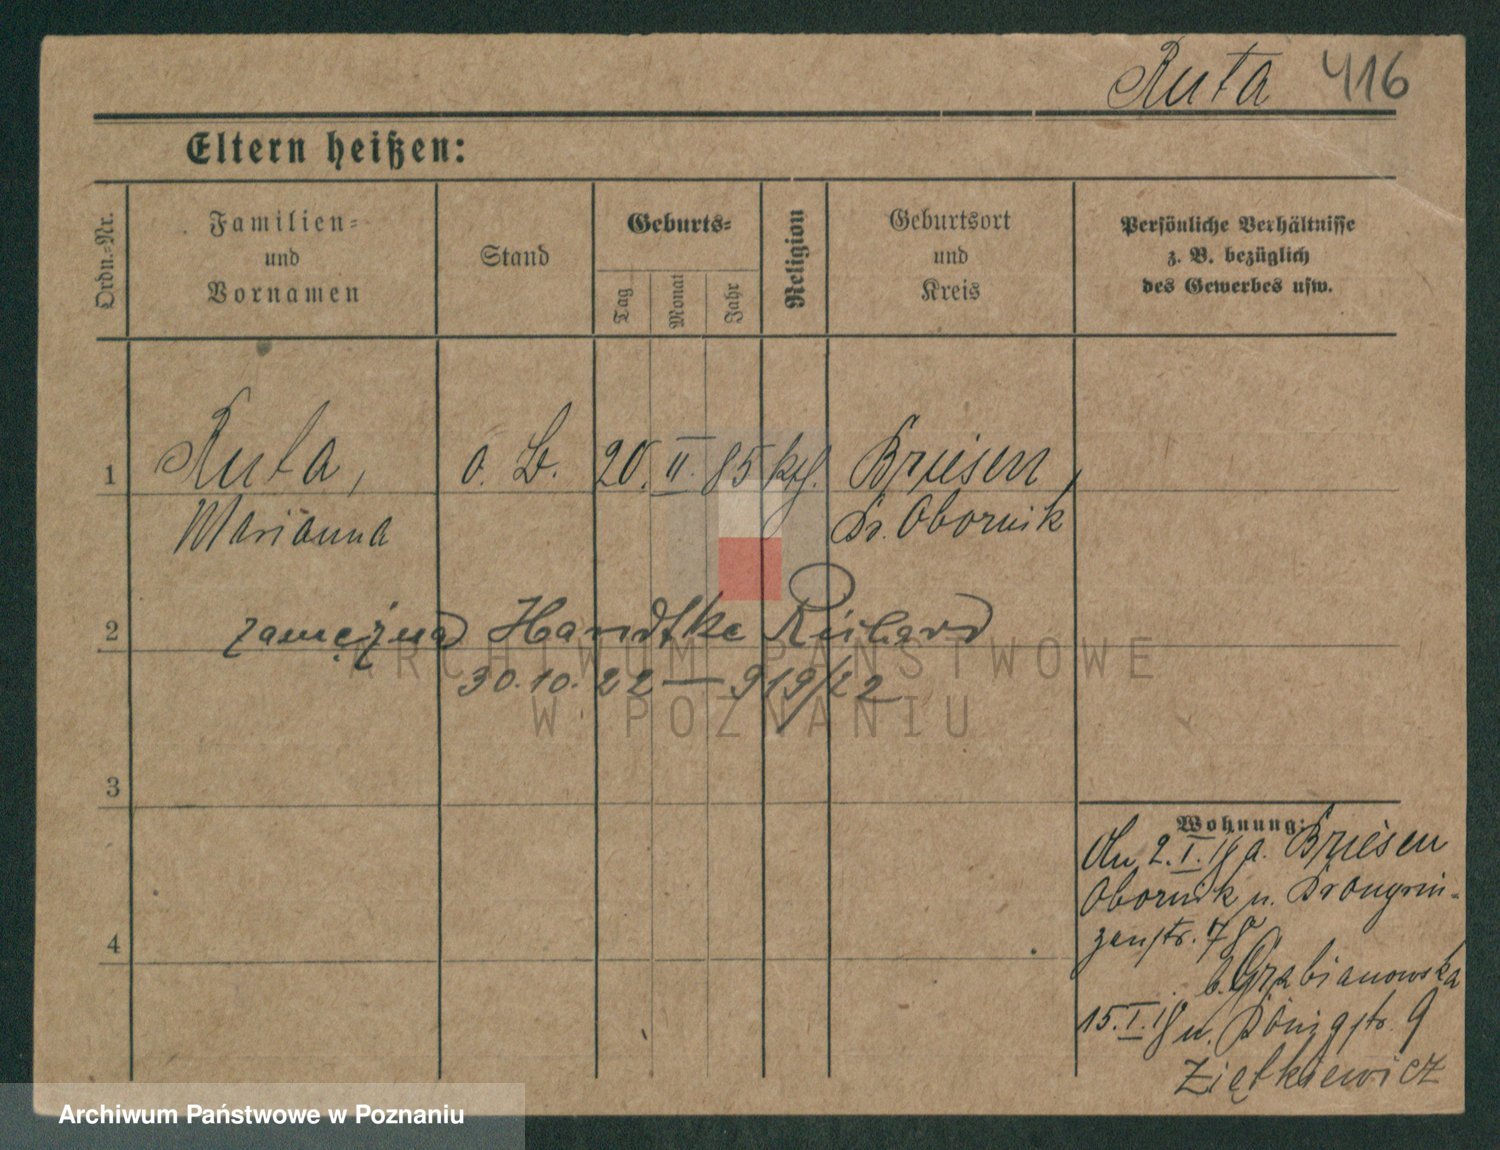 Ruta 416
Eltern heißen:
Ordn.-Nr.
Familien-
und
Vornamen
Stand
Geburts-
Tag
Monat
Jahr
Religion
Geburtsort
und
Kreis
Persönliche Verhältnisse
z. B. bezüglich
des Gewerbes usw.
1 Ruta, o. B. 20. II. 85 kth. Briesen,
Marianna Kr. Obornik
2 zamężna Handtke Richard
30.10.22 — 919/22
3
4
Wohnung:
An 2.I.18 a. Briesen
Obornik n.
7
b. Grabianowska
15.I.18 n. Königstr. 9
Ziętkiewicz
ARCHIWUM PAŃSTWOWE
W POZNANIU
Archiwum Państwowe w Poznaniu